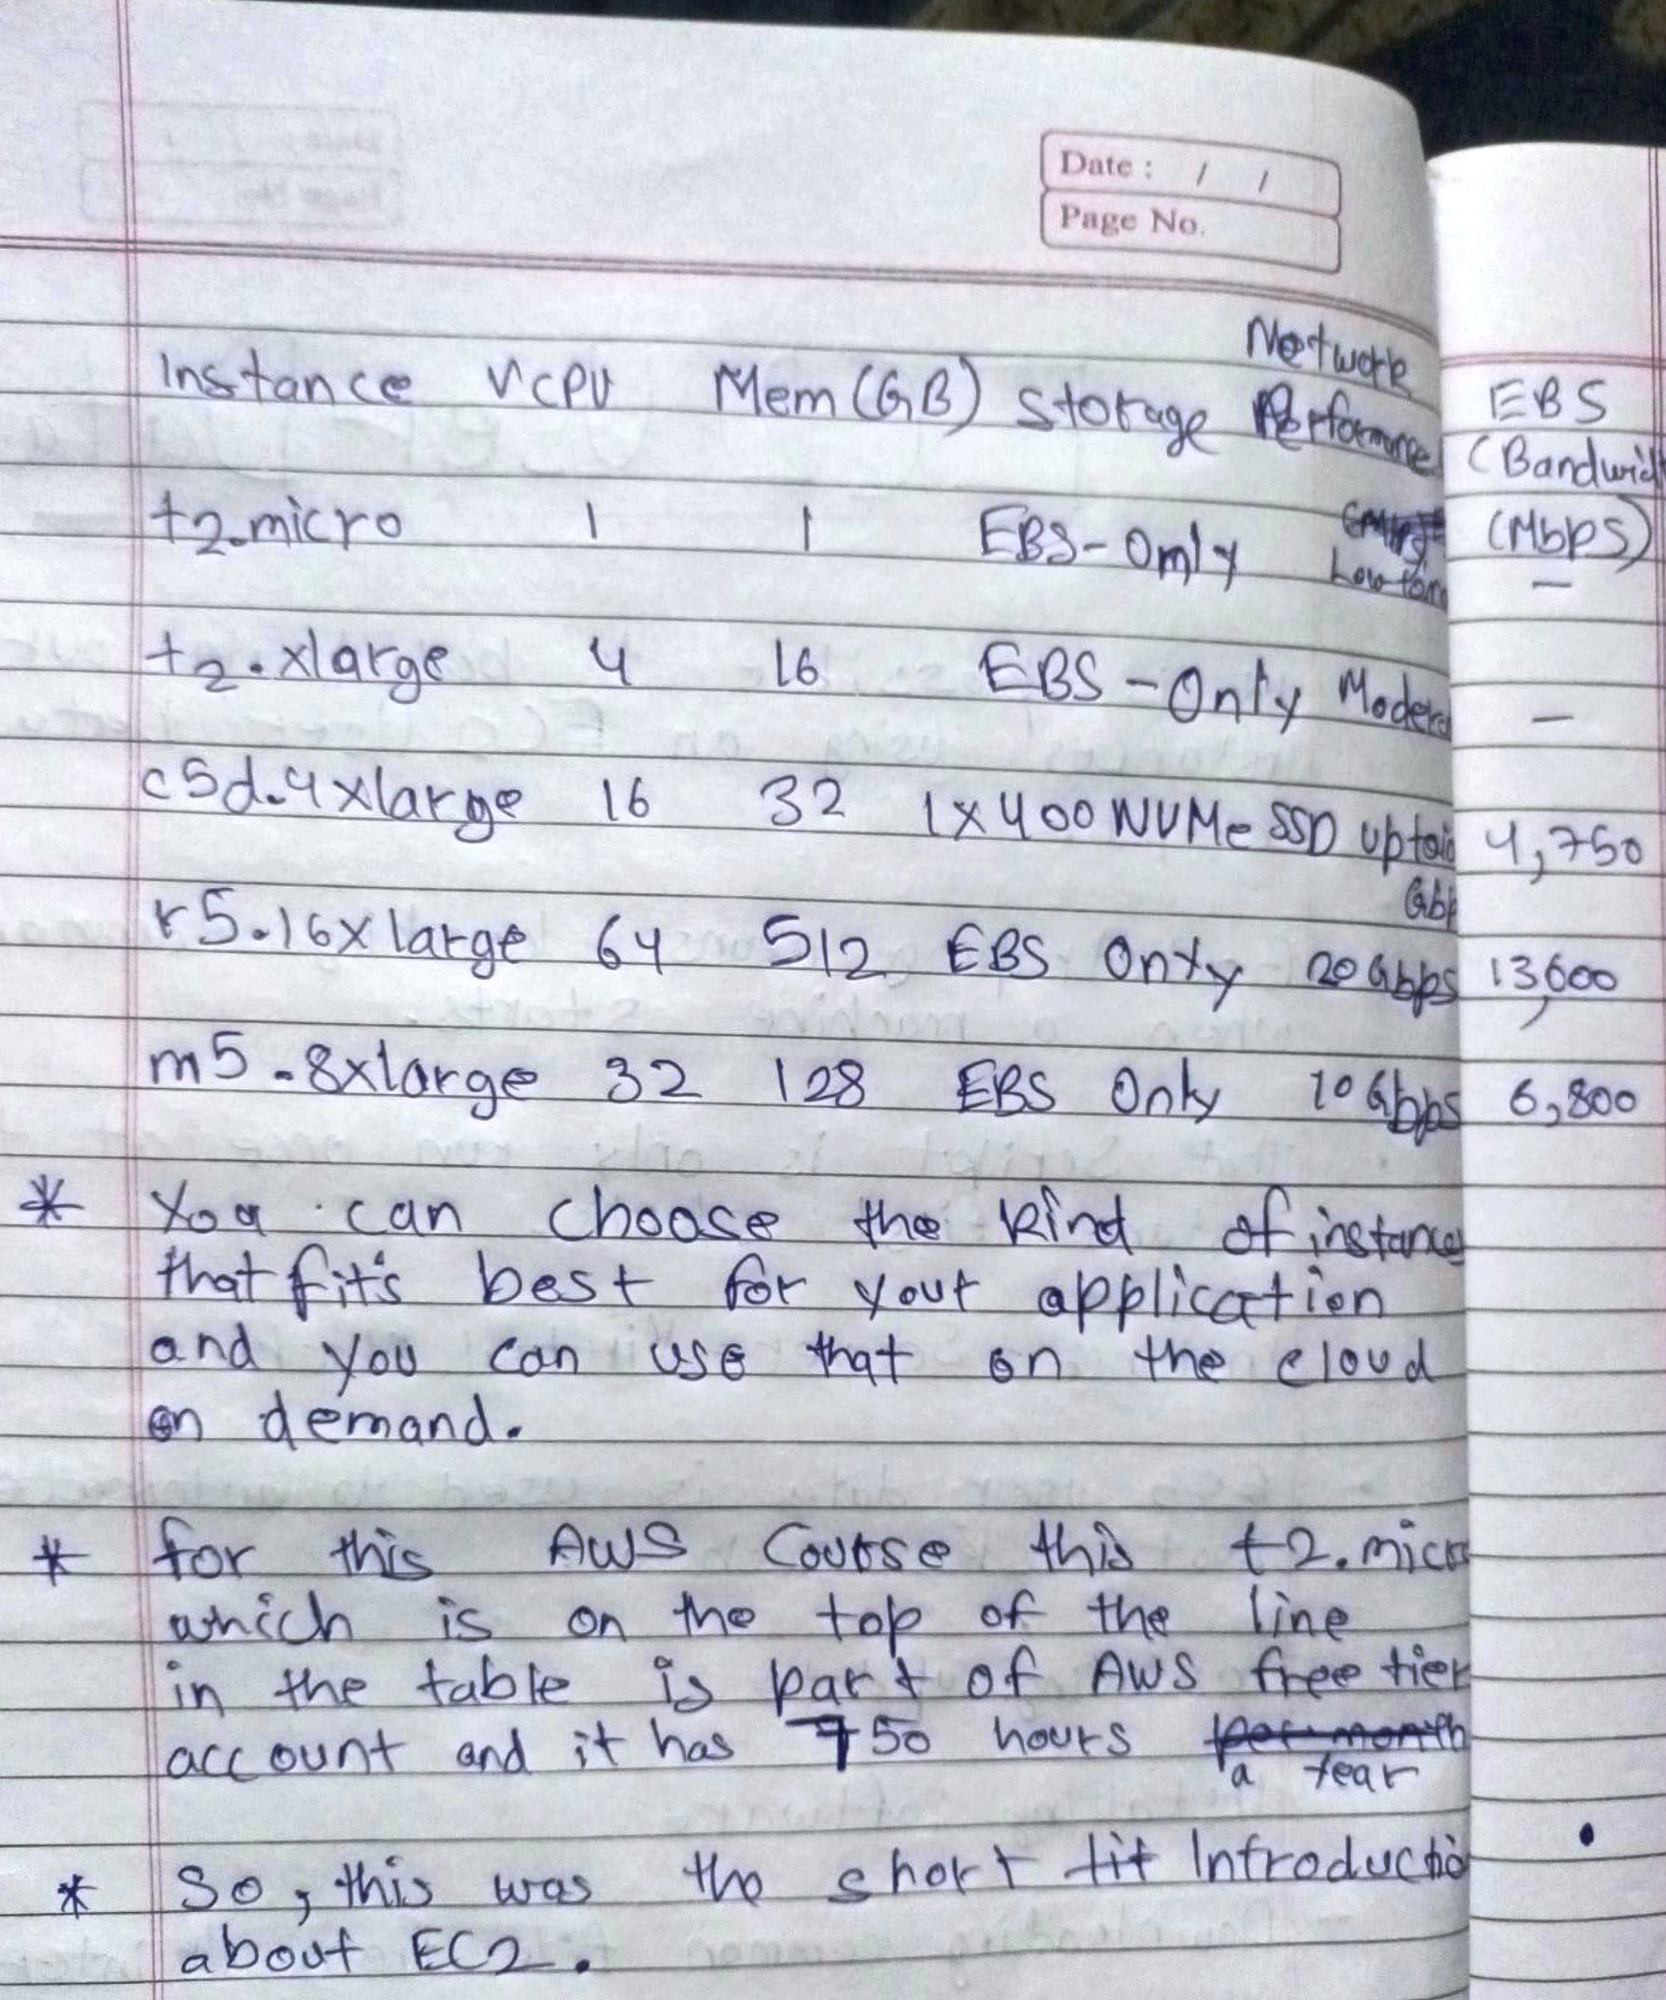 Date : / /
Page No.
Network
Instance vCPU Mem (GB) Storage Performance EBS
(Bandwid
t2.micro 1 1 EBS-Only Low to (Mbps)
—
t2.xlarge 4 16 EBS-Only Modera —
c5d.4xlarge 16 32 1x400 NVMe SSD upto 4,750
Gbp
r5.16xlarge 64 512 EBS Only 20 Gbps 13,600
m5.8xlarge 32 128 EBS Only 10 Gbps 6,800
* You can choose the kind of instance
that fit's best for your application
and you can use that on the cloud
on demand.
* for this AWS Course this t2.micro
which is on the top of the line
in the table is part of AWS free tier
account and it has 750 hours per month
a Year
* So, this was the short tit Introductio
about EC2.